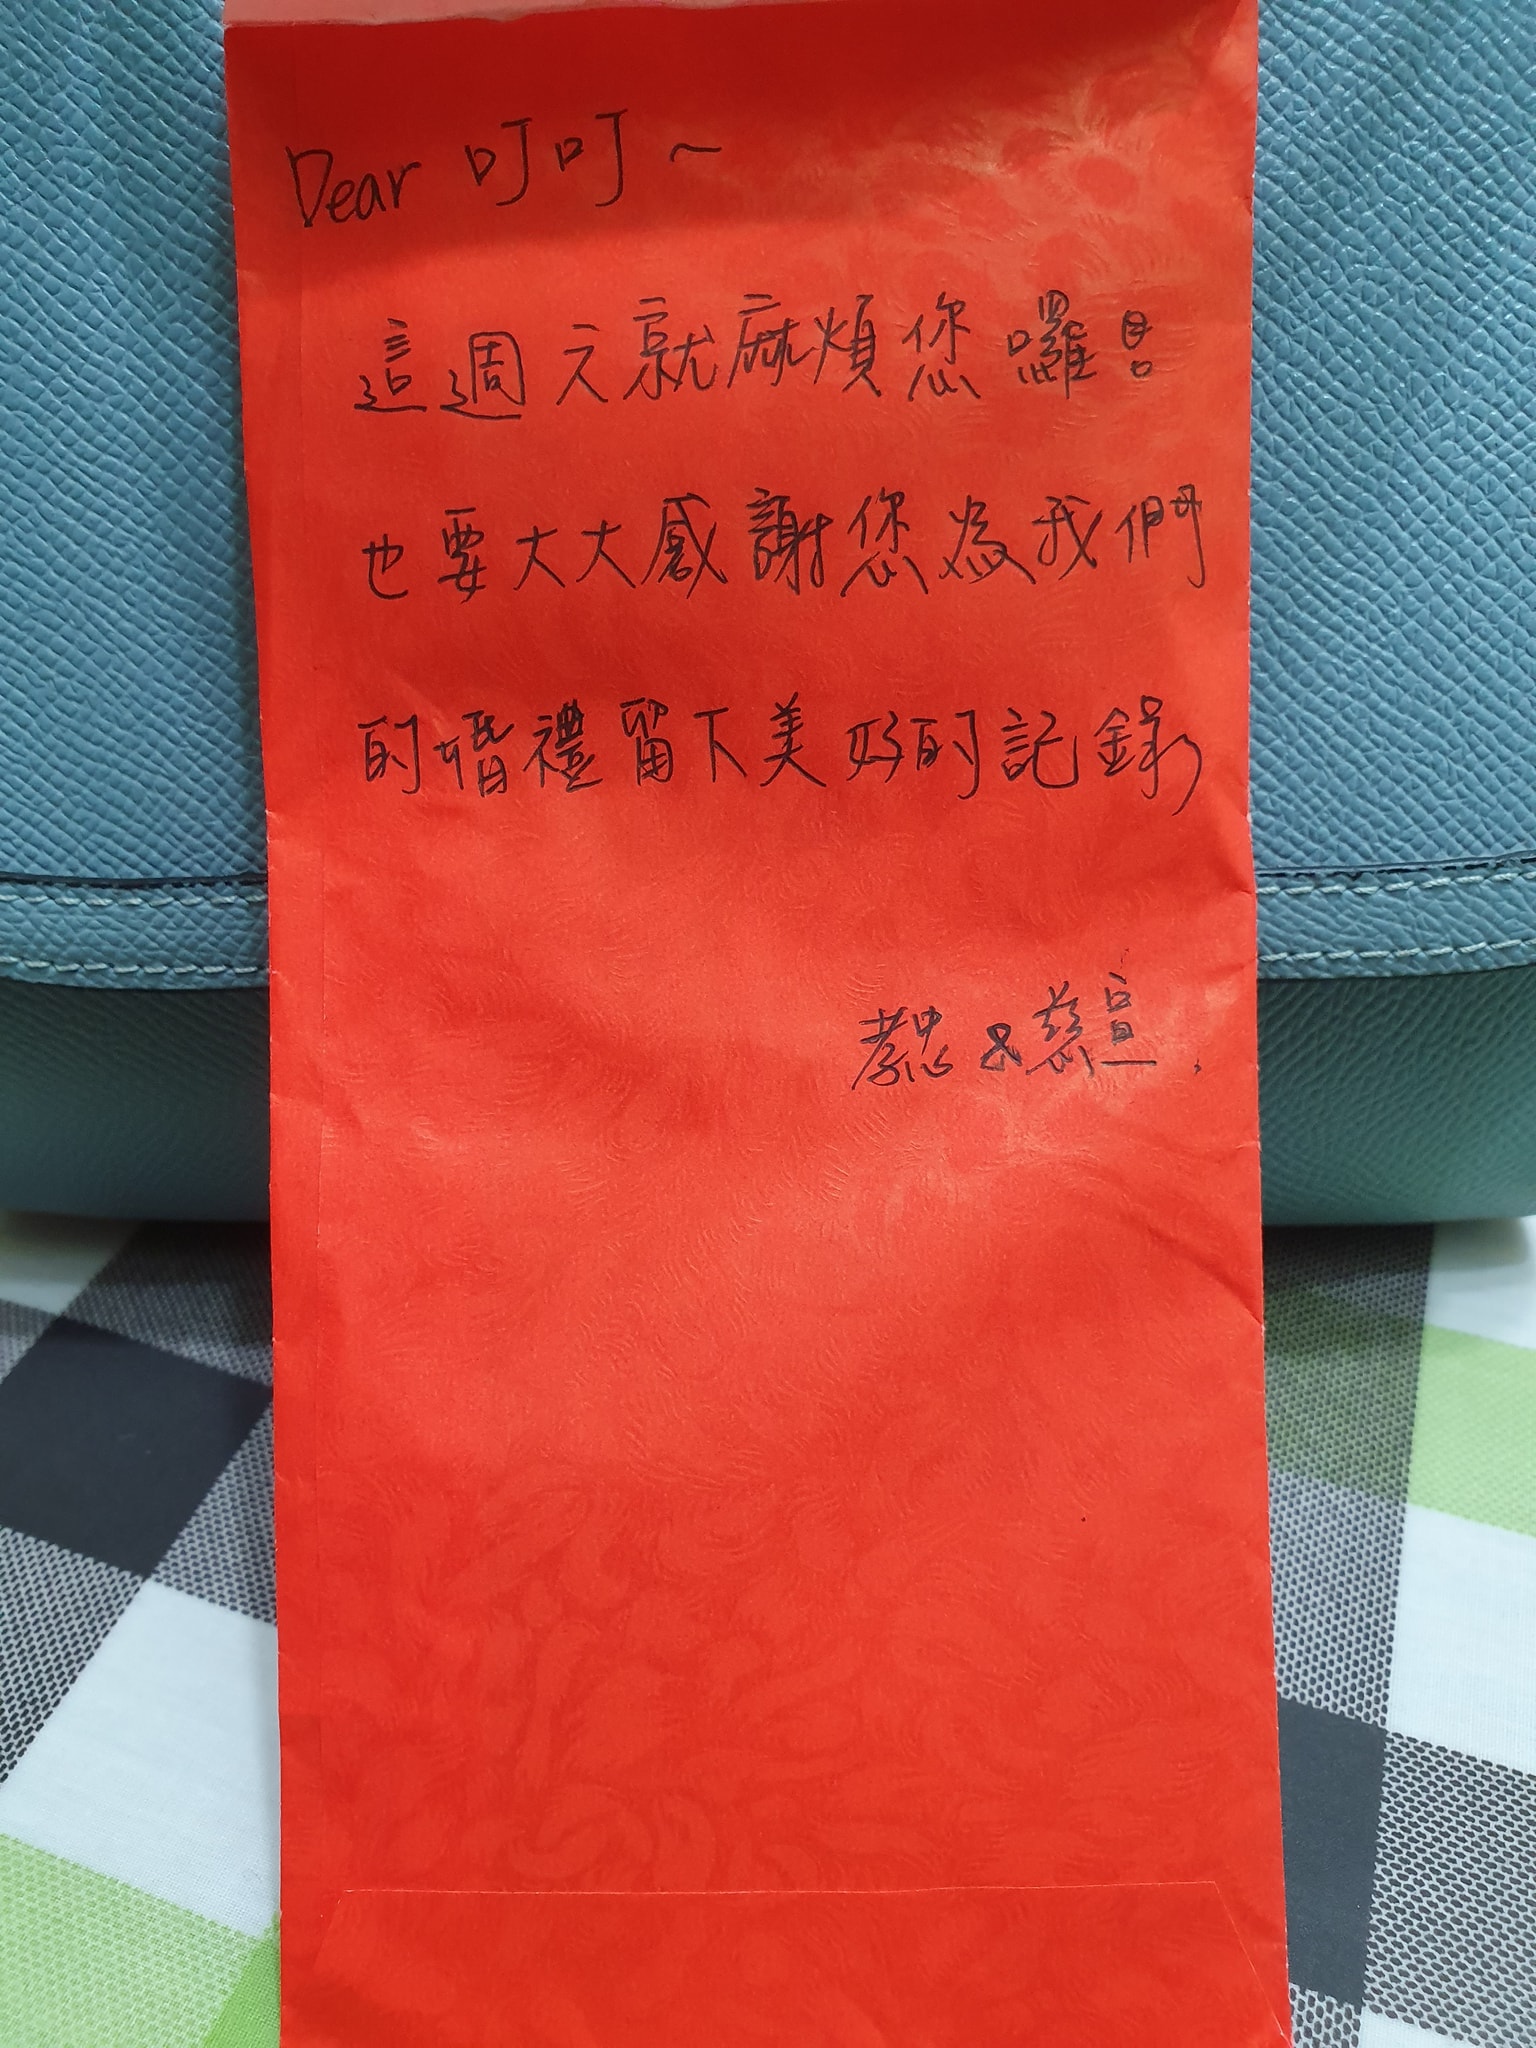 Dear 叮叮~
這週六就麻煩您囉!!
也要大大感謝您為我們
的婚禮留下美好的記錄
孝忠 & 慈宣.